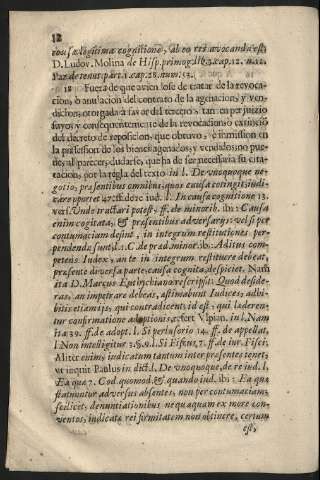 12
cousæ legitima cognitione, ab eo res avocanda est;
D. Ludov. Molina de Hisp. primog. lib. 3. cap. 12. n. 12.
Paz de tenut. part. 1. cap. 28. num. 53.
18 Fuera de que aviendose de tratar de la revoca-
cion, ò anulacion del contrato de la agenacion, y ven-
dicion, otorgada à favor del tercero, tan en perjuizio
suyo, y consequentemente de la revocacion, ò extincio
del decreto de reposicion, que obtuvo, è inmission en
la possession de los bienes agenados, y vendidos, no pue-
de, al parecer, dudarse, que ha de ser necessaria su cita-
cion, por la regla del texto in l. De vnoquoque ne-
gotio, præsentibus omnibus, quos causa contingit, iudi-
care oportet 47. ff. de re iud. l. In causa cognitione 13.
vers. Vnde tractari potest, ff. de minorib. ibi: Causa
enim cognita, & præsentibus adversarijs: vel si per
contumaciam desint, in integrum restitutiones per-
pendendæ sunt, l. 1. C. de præd. minor. ibi: Aditus com-
petens Iudex, an te in integrum restituere debeat,
præsente diversa parte, causa cognita, despiciet. Nam
ita D. Marcus Euthychiano rescripsit: Quod deside-
ras, an impetrare debeas, æstimabunt Iudices; adhi-
bitis etiam ijs, qui contradicent, id est, qui læderen-
tur confirmatione adoptionis, refert Vlpian. in l. Nam
ita 39. ff. de adopt. l. Si perlusorio 14. ff. de appellat.
l. Non intelligitur 3. §. 9. l. Si Fiscus, 7. ff. de iur. Fisci;
Aliter enim, iudicatum tantum inter præsentes tenet,
vt inquit Paulus in dict. l. De vnoquoque, de re iud. l.
Ea quæ 7. Cod. quomod. & quando iud. ibi: Ea quæ
statuuntur adversus absentes, non per contumaciam,
scilicet, denuntiationibus nequaquam ex more con-
ventos, iudicatæ rei firmitatem non obtinere, certum
est,